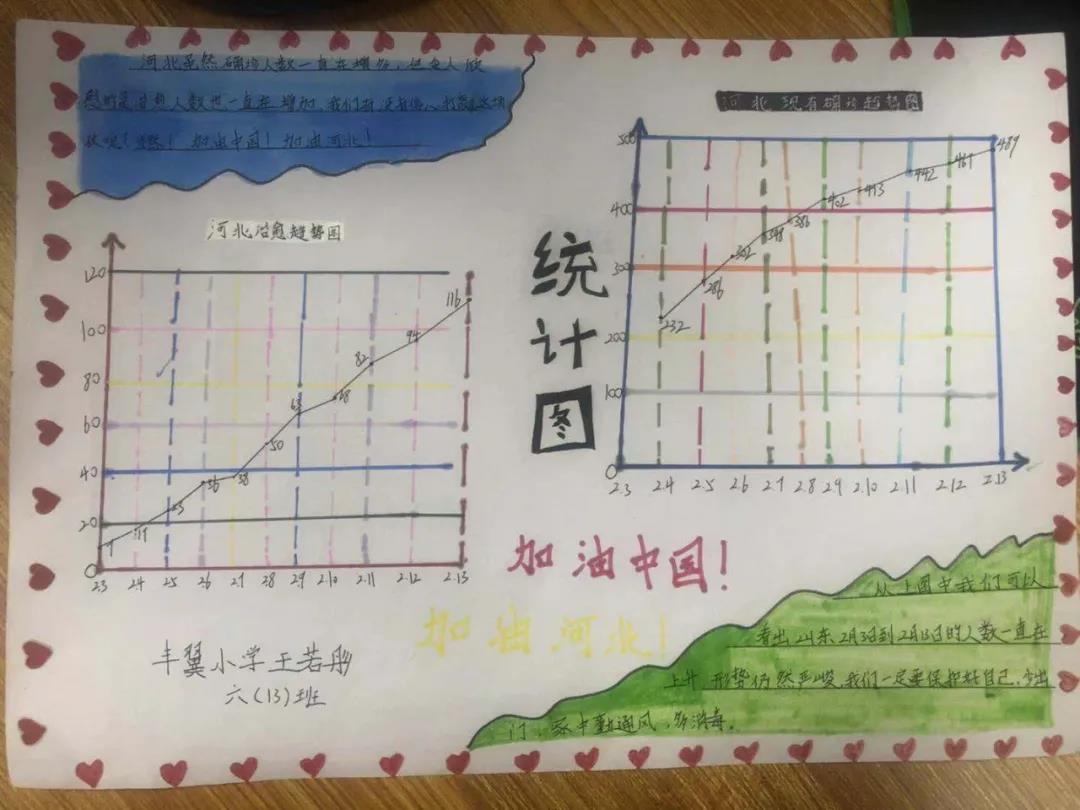 河北虽然确诊人数一直在增加,但令人欣
慰的是治愈人数也一直在增加,我们有
呢! 加油中国! 加油河北!
河北现有确诊趋势图
500
400
300
200
100
0
232
286
302
348
386
402
413
442
467
489
2.3 2.4 2.5 2.6 2.7 2.8 2.9 2.10 2.11 2.12 2.13
河北治愈趋势图
120
100
80
60
40
20
0
25
36
38
50
63
68
82
94
116
2.3 2.4 2.5 2.6 2.7 2.8 2.9 2.10 2.11 2.12 2.13
统
计
图
加油中国!
加油河北!
丰翼小学王若彤
六(13)班
从上图中我们可以
看出山东2月3日到2月13日的人数一直在
上升 形势仍然严峻,我们一定要保护好自己,少出
门,家中勤通风,多消毒。